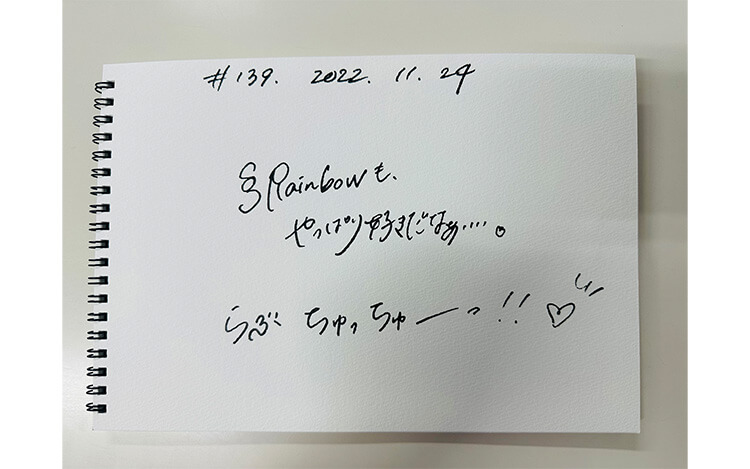 #139. 2022. 11. 24
§Rainbowも、
やっぱり好きだなぁ‥‥。
らぶ ちゅっちゅーっ!!♡